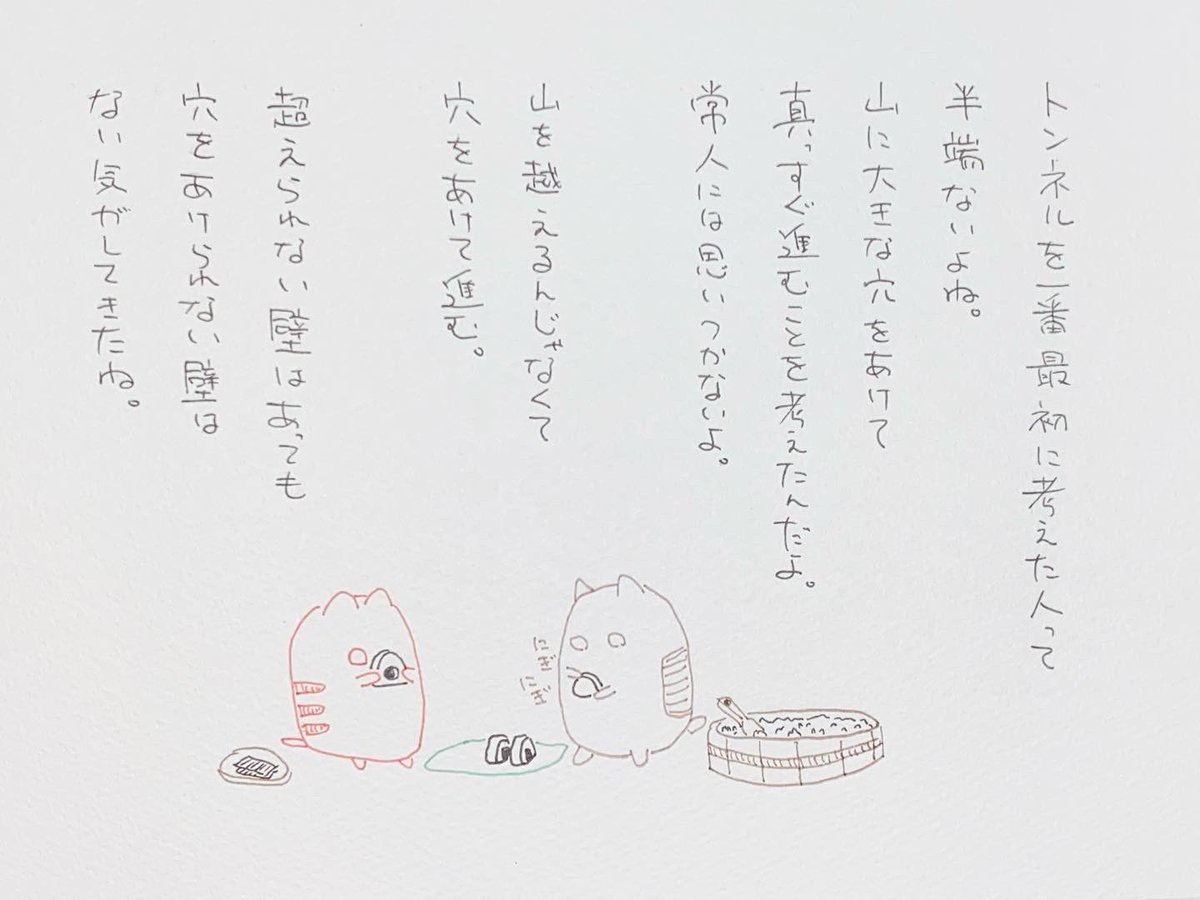 トンネルを一番最初に考えた人って
半端ないよね。
山に大きな穴をあけて
真っすぐ進むことを考えたんだよ。
常人には思いつかないよ。
山を越えるんじゃなくて
穴をあけて進む。
超えられない壁はあっても
穴をあけられない壁は
ない気がしてきたね。
にぎ
にぎ